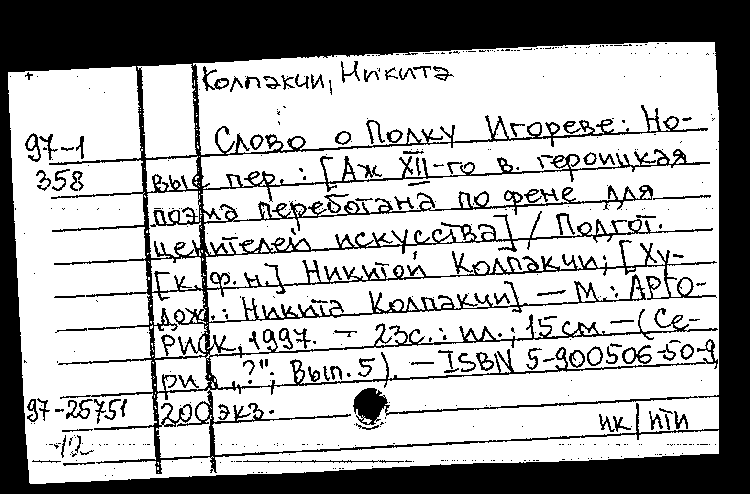 Колпакчи, Никита
97-1 Слово о Полку Игореве: Но-
358 вые пер.: [Аж XII-го в. героицкая
поэма переботана по фене для
ценителей искусства] / Подгот.
[к. ф. н.] Никитой Колпакчи; [Ху-
дож.: Никита Колпакчи]. — М.: АРГО-
РИСК, 1997. — 23с.: ил.; 15см. — (Се-
рия „?"; Вып. 5). — ISBN 5-900506-50-9,
97-25751 200 экз.
12 пк/пти